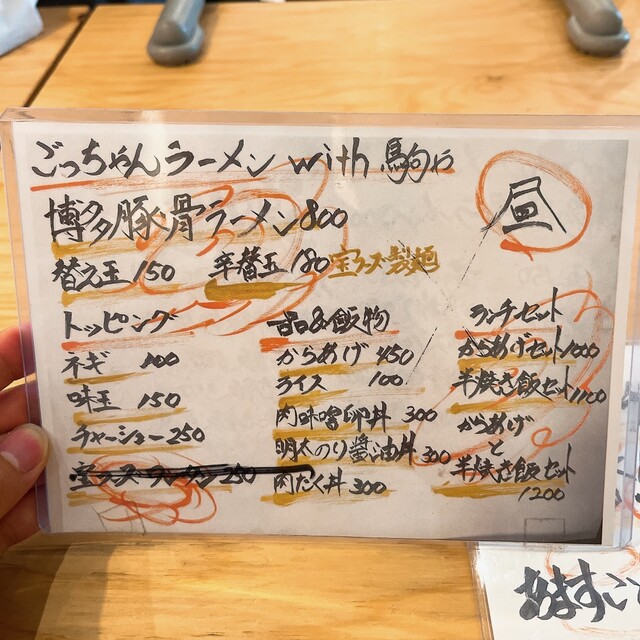 ごっちゃんラーメン with 駒行
昼
博多豚骨ラーメン800
替え玉150 辛替玉180 宝ケース製麺
トッピング
ネギ 100
味玉 150
チャーシュー250
250
一品&飯物
からあげ 450
ライス 100
肉味噌卵丼 300
明太のり醤油丼 300
肉たく丼 300
ランチセット
からあげセット1000
半焼き飯セット1100
からあげ
と
半焼き飯セット
1200